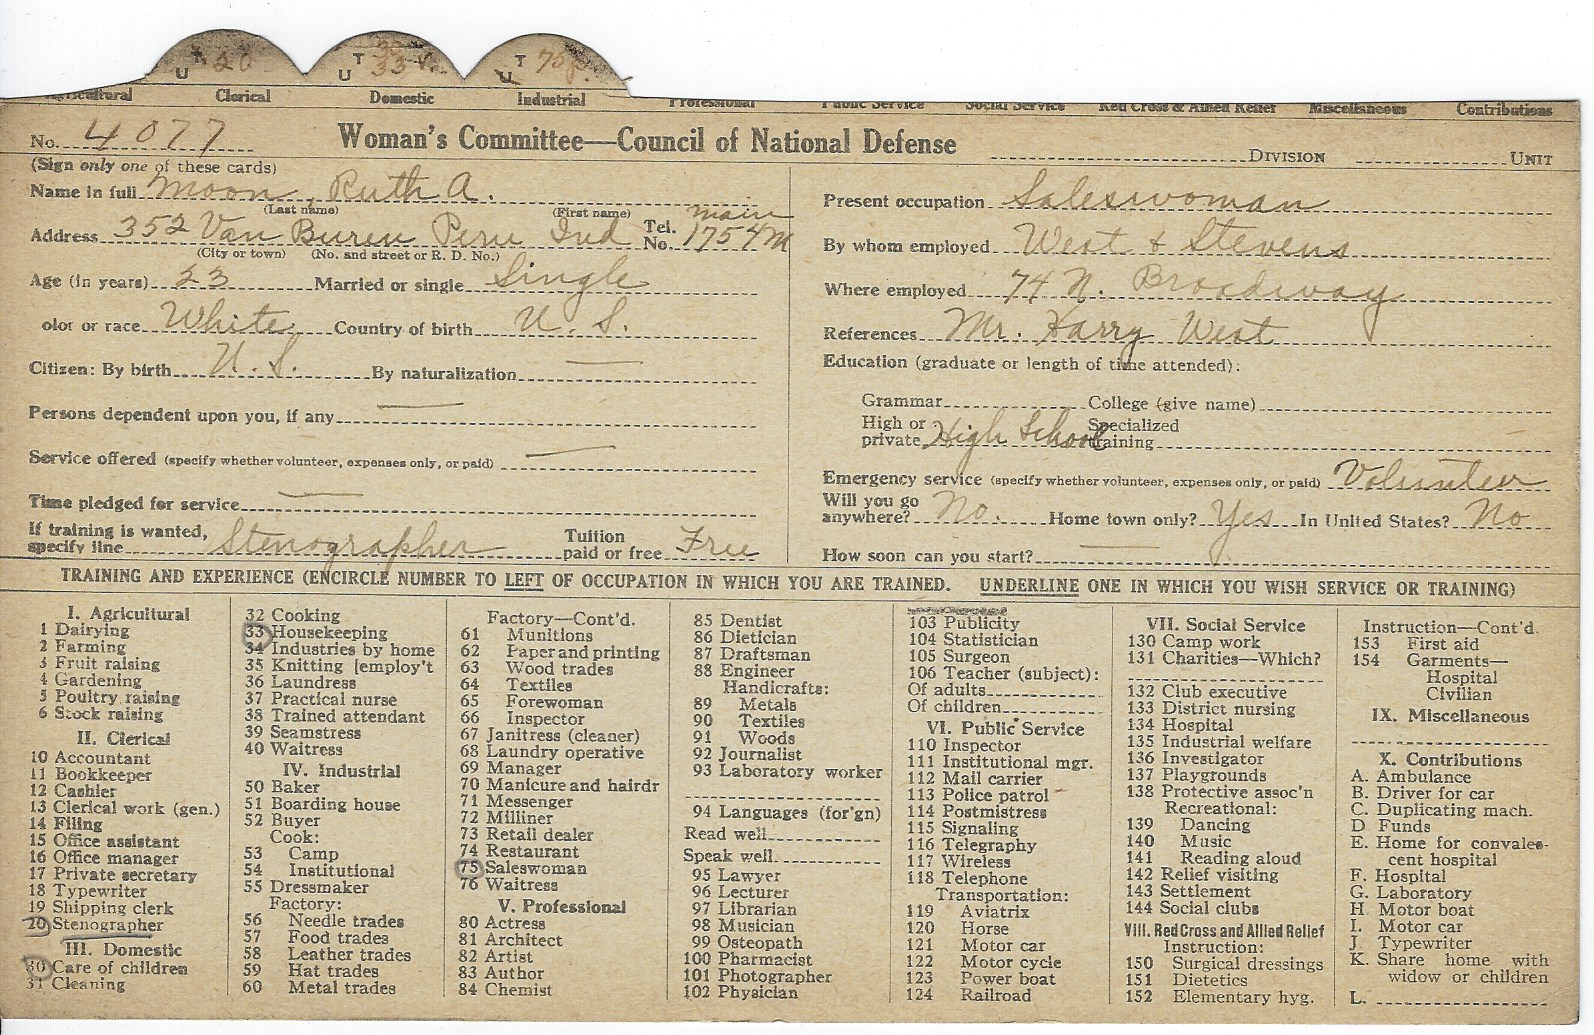 T U 20
T U 30 33
T U 75
Agricultural Clerical Domestic Industrial Professional Public Service Social Service Red Cross & Allied Relief Miscellaneous Contributions
No. 4077 Woman's Committee—Council of National Defense DIVISION UNIT
(Sign only one of these cards)
Name in full Moon, Ruth A.
(Last name) (First name)
Address 352 Van Buren Peru Ind Tel. No. Main 1754M
(City or town) (No. and street or R. D. No.)
Age (in years) 23 Married or single Single
olor or race White Country of birth U. S.
Citizen: By birth U. S. By naturalization —
Persons dependent upon you, if any —
Service offered (specify whether volunteer, expenses only, or paid) —
Time pledged for service —
If training is wanted, specify line Stenographer Tuition paid or free Free
Present occupation Saleswoman
By whom employed West & Stevens
Where employed 74 N. Broadway
References Mr. Harry West
Education (graduate or length of time attended):
Grammar College (give name)
High or private High School Specialized training
Emergency service (specify whether volunteer, expenses only, or paid) Volunteer
Will you go anywhere? No. Home town only? Yes In United States? No
How soon can you start? —
TRAINING AND EXPERIENCE (ENCIRCLE NUMBER TO LEFT OF OCCUPATION IN WHICH YOU ARE TRAINED. UNDERLINE ONE IN WHICH YOU WISH SERVICE OR TRAINING)
I. Agricultural
1 Dairying
2 Farming
3 Fruit raising
4 Gardening
5 Poultry raising
6 Stock raising
II. Clerical
10 Accountant
11 Bookkeeper
12 Cashier
13 Clerical work (gen.)
14 Filing
15 Office assistant
16 Office manager
17 Private secretary
18 Typewriter
19 Shipping clerk
20 Stenographer
III. Domestic
30 Care of children
31 Cleaning
32 Cooking
33 Housekeeping
34 Industries by home
35 Knitting [employ't
36 Laundress
37 Practical nurse
38 Trained attendant
39 Seamstress
40 Waitress
IV. Industrial
50 Baker
51 Boarding house
52 Buyer
Cook:
53 Camp
54 Institutional
55 Dressmaker
Factory:
56 Needle trades
57 Food trades
58 Leather trades
59 Hat trades
60 Metal trades
Factory—Cont'd.
61 Munitions
62 Paper and printing
63 Wood trades
64 Textiles
65 Forewoman
66 Inspector
67 Janitress (cleaner)
68 Laundry operative
69 Manager
70 Manicure and hairdr
71 Messenger
72 Milliner
73 Retail dealer
74 Restaurant
75 Saleswoman
76 Waitress
V. Professional
80 Actress
81 Architect
82 Artist
83 Author
84 Chemist
85 Dentist
86 Dietician
87 Draftsman
88 Engineer
Handicrafts:
89 Metals
90 Textiles
91 Woods
92 Journalist
93 Laboratory worker
94 Languages (for'gn)
Read well
Speak well
95 Lawyer
96 Lecturer
97 Librarian
98 Musician
99 Osteopath
100 Pharmacist
101 Photographer
102 Physician
103 Publicity
104 Statistician
105 Surgeon
106 Teacher (subject):
Of adults
Of children
VI. Public Service
110 Inspector
111 Institutional mgr.
112 Mail carrier
113 Police patrol
114 Postmistress
115 Signaling
116 Telegraphy
117 Wireless
118 Telephone
Transportation:
119 Aviatrix
120 Horse
121 Motor car
122 Motor cycle
123 Power boat
124 Railroad
VII. Social Service
130 Camp work
131 Charities—Which?
132 Club executive
133 District nursing
134 Hospital
135 Industrial welfare
136 Investigator
137 Playgrounds
138 Protective assoc'n
Recreational:
139 Dancing
140 Music
141 Reading aloud
142 Relief visiting
143 Settlement
144 Social clubs
VIII. Red Cross and Allied Relief
Instruction:
150 Surgical dressings
151 Dietetics
152 Elementary hyg.
Instruction—Cont'd.
153 First aid
154 Garments—
Hospital
Civilian
IX. Miscellaneous
X. Contributions
A. Ambulance
B. Driver for car
C. Duplicating mach.
D Funds
E. Home for convales-
cent hospital
F. Hospital
G. Laboratory
H. Motor boat
I. Motor car
J. Typewriter
K. Share home with
widow or children
L.